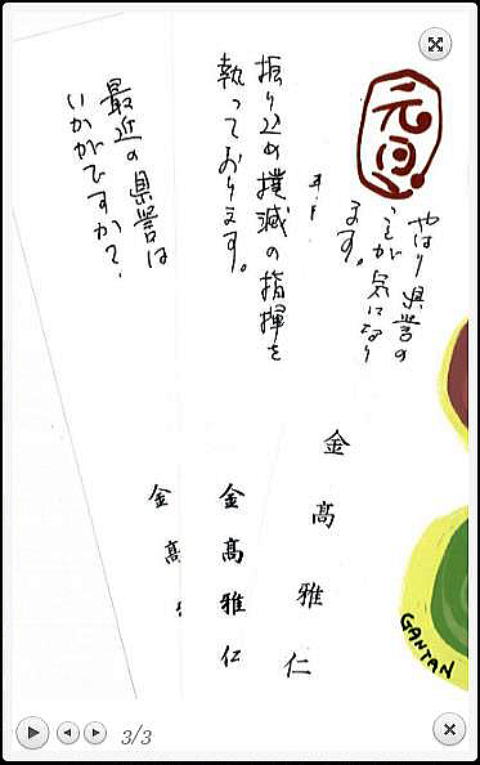 元旦
やはり県警の
ことが気になり
ます。
金高雅仁
振り込め撲滅の指揮を
執っております。
金高雅仁
最近の県警は
いかがですか?
金高
GANTAN
3/3